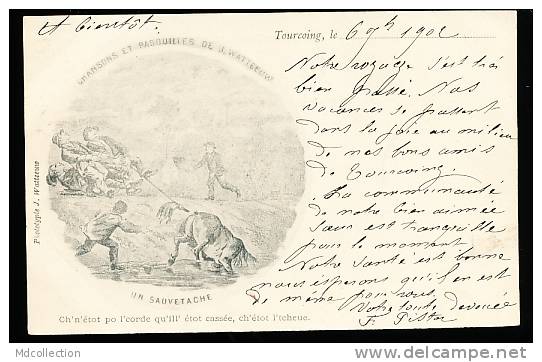 A bientôt.
Tourcoing, le 6 9bre 1902
CHANSONS ET PASQUILLES DE J. WATTEEUW
Notre voyage s'est très
bien passé. Nos
vacances se passent
dans la joie au milieu
de nos bons amis
de Tourcoing.
La communauté
de notre bien aimée
sœur est tranquille
pour le moment
Notre santé est bonne
nous espérons qu'il en est
de même pour vous.
Votre toute dévouée
F. Pistor
Phototypie J. Watteeuw
UN SAUVETACHE
Ch'n'étot po l'corde qu'ill' étot cassée, ch'étot l'tcheue.
MDCollection
delcampe.net